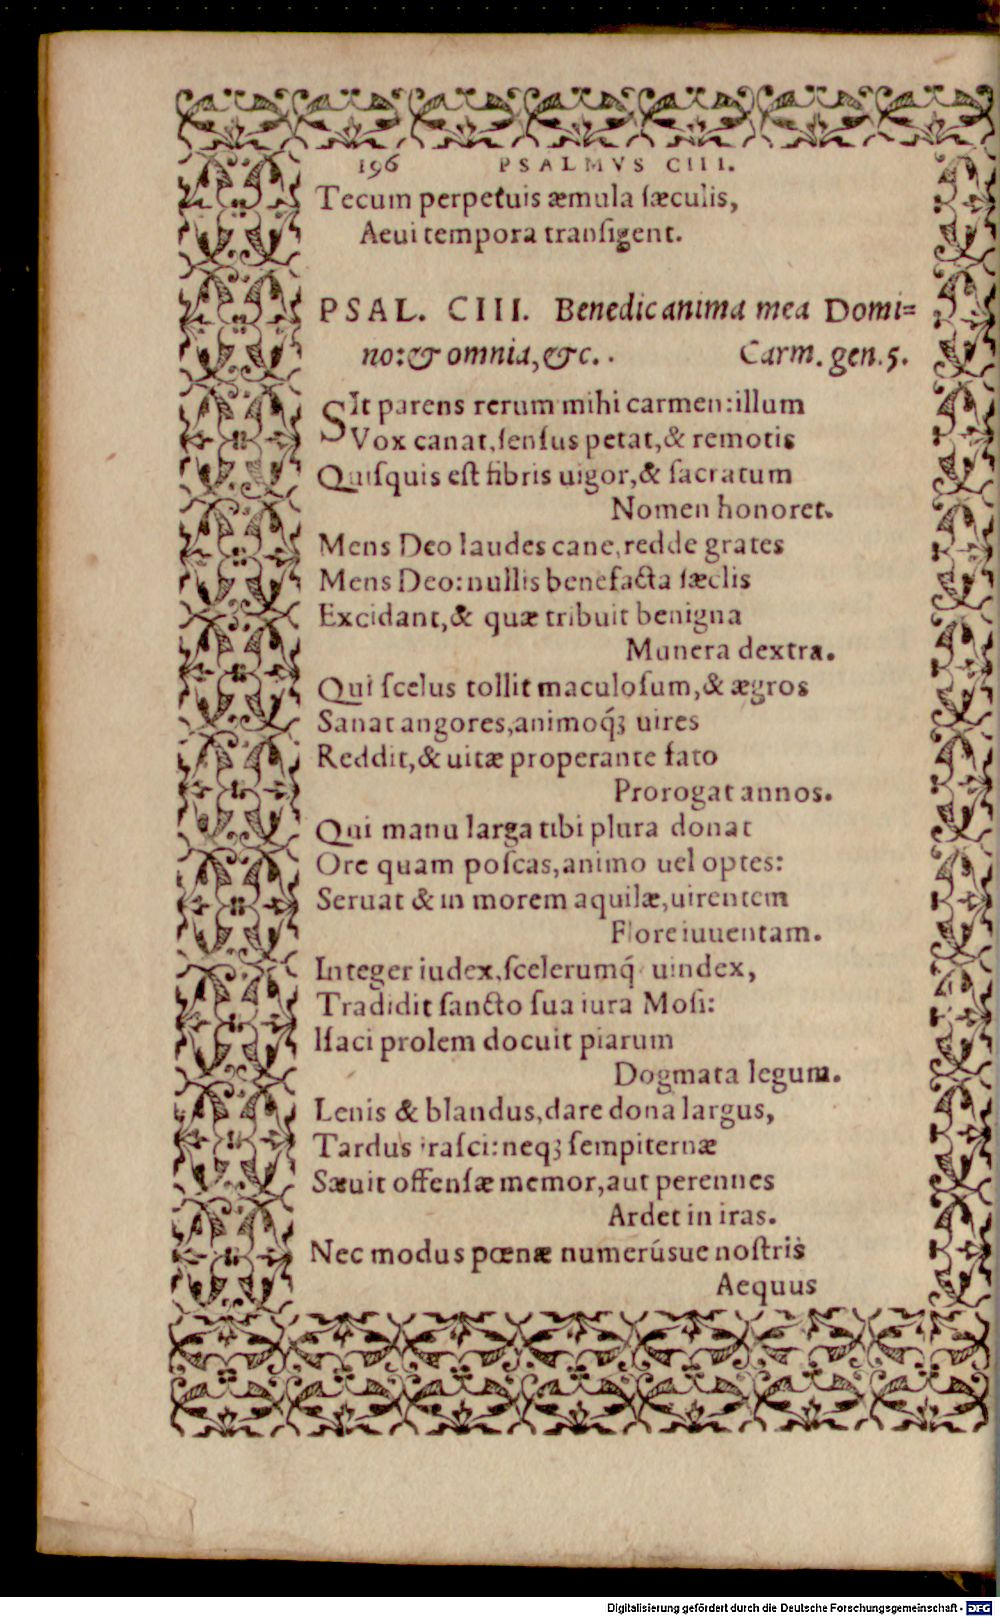 196 PSALMVS CIII.
Tecum perpetuis æmula ſæculis,
Aeui tempora tranſigent.
PSAL. CIII. Benedic anima mea Domi=
no:& omnia,&c. . Carm. gen. 5.
SIt parens rerum mihi carmen: illum
Vox canat, ſenſus petat,& remotis
Quiſquis eſt fibris uigor,& ſacratum
Nomen honoret.
Mens Deo laudes cane, redde grates
Mens Deo: nullis benefacta ſæclis
Excidant,& quæ tribuit benigna
Munera dextra.
Qui ſcelus tollit maculoſum,& ægros
Sanat angores, animoq́ꝫ uires
Reddit,& uitæ properante fato
Prorogat annos.
Qui manu larga tibi plura donat
Ore quam poſcas, animo uel optes:
Seruat & in morem aquilæ, uirentem
Flore iuuentam.
Integer iudex, ſcelerumq́ uindex,
Tradidit ſancto ſua iura Moſi:
Iſaci prolem docuit piarum
Dogmata legum.
Lenis & blandus, dare dona largus,
Tardus iraſci: neqꝫ ſempiternæ
Sæuit offenſæ memor, aut perennes
Ardet in iras.
Nec modus pœnæ numerúsue noſtris
Aequus
Digitalisierung gefördert durch die Deutsche Forschungsgemeinschaft - DFG